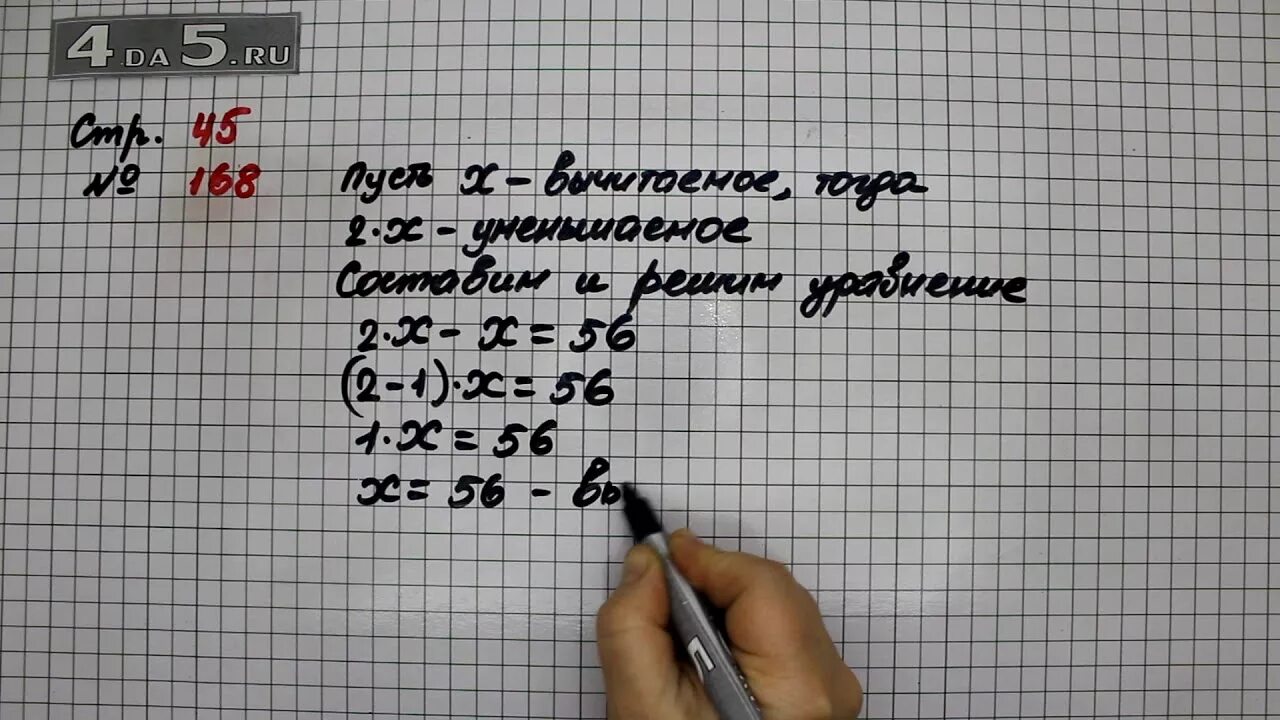 4DA5.RU
Стр. 45
№ 168
Пусть х - вычитаемое, тогда
2·х - уменьшаемое
Составим и решим уравнение
2·х - х = 56
(2-1)·х = 56
1·х = 56
х = 56 - вы